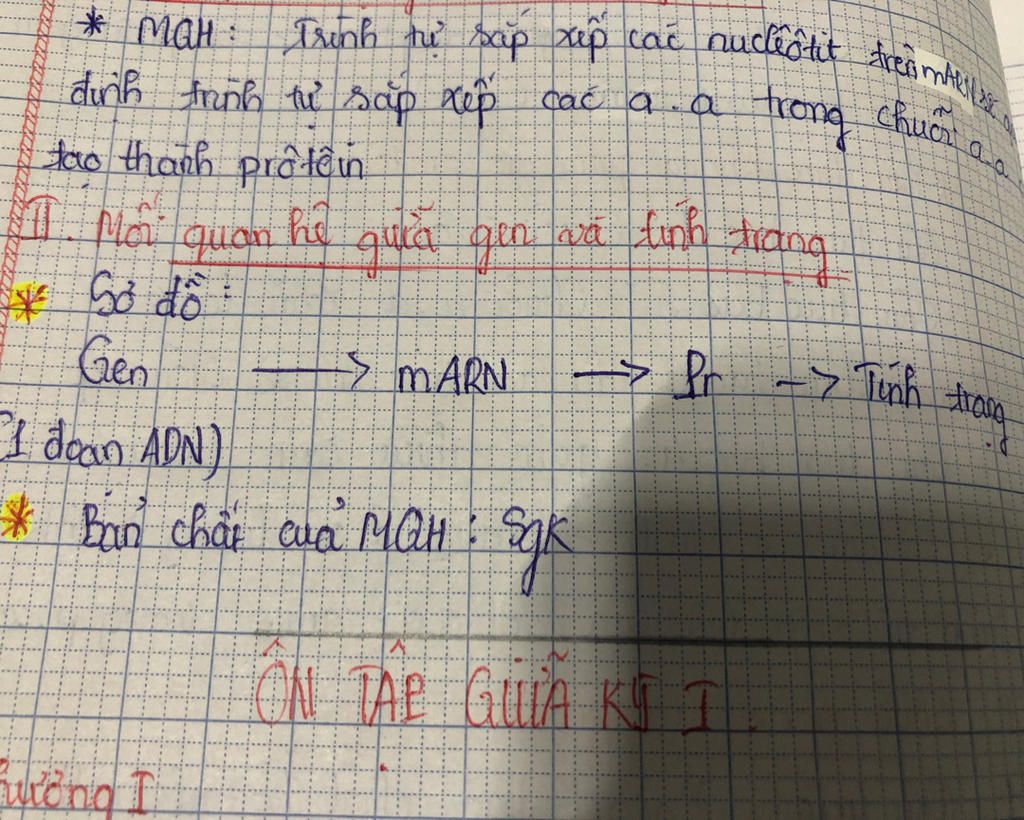 * MQH: Trình tự sắp xếp các nuclêôtit trên mARN
định trình tự sắp xếp các a.a trong chuỗi a.a
tạo thành prôtêin
II. Mối quan hệ giữa gen và tính trạng
* Sơ đồ:
Gen → mARN → Pr → Tính trạng
1 đoạn ADN)
* Bản chất của MQH: Sgk
ÔN TẬP GIỮA KỲ I.
hương I